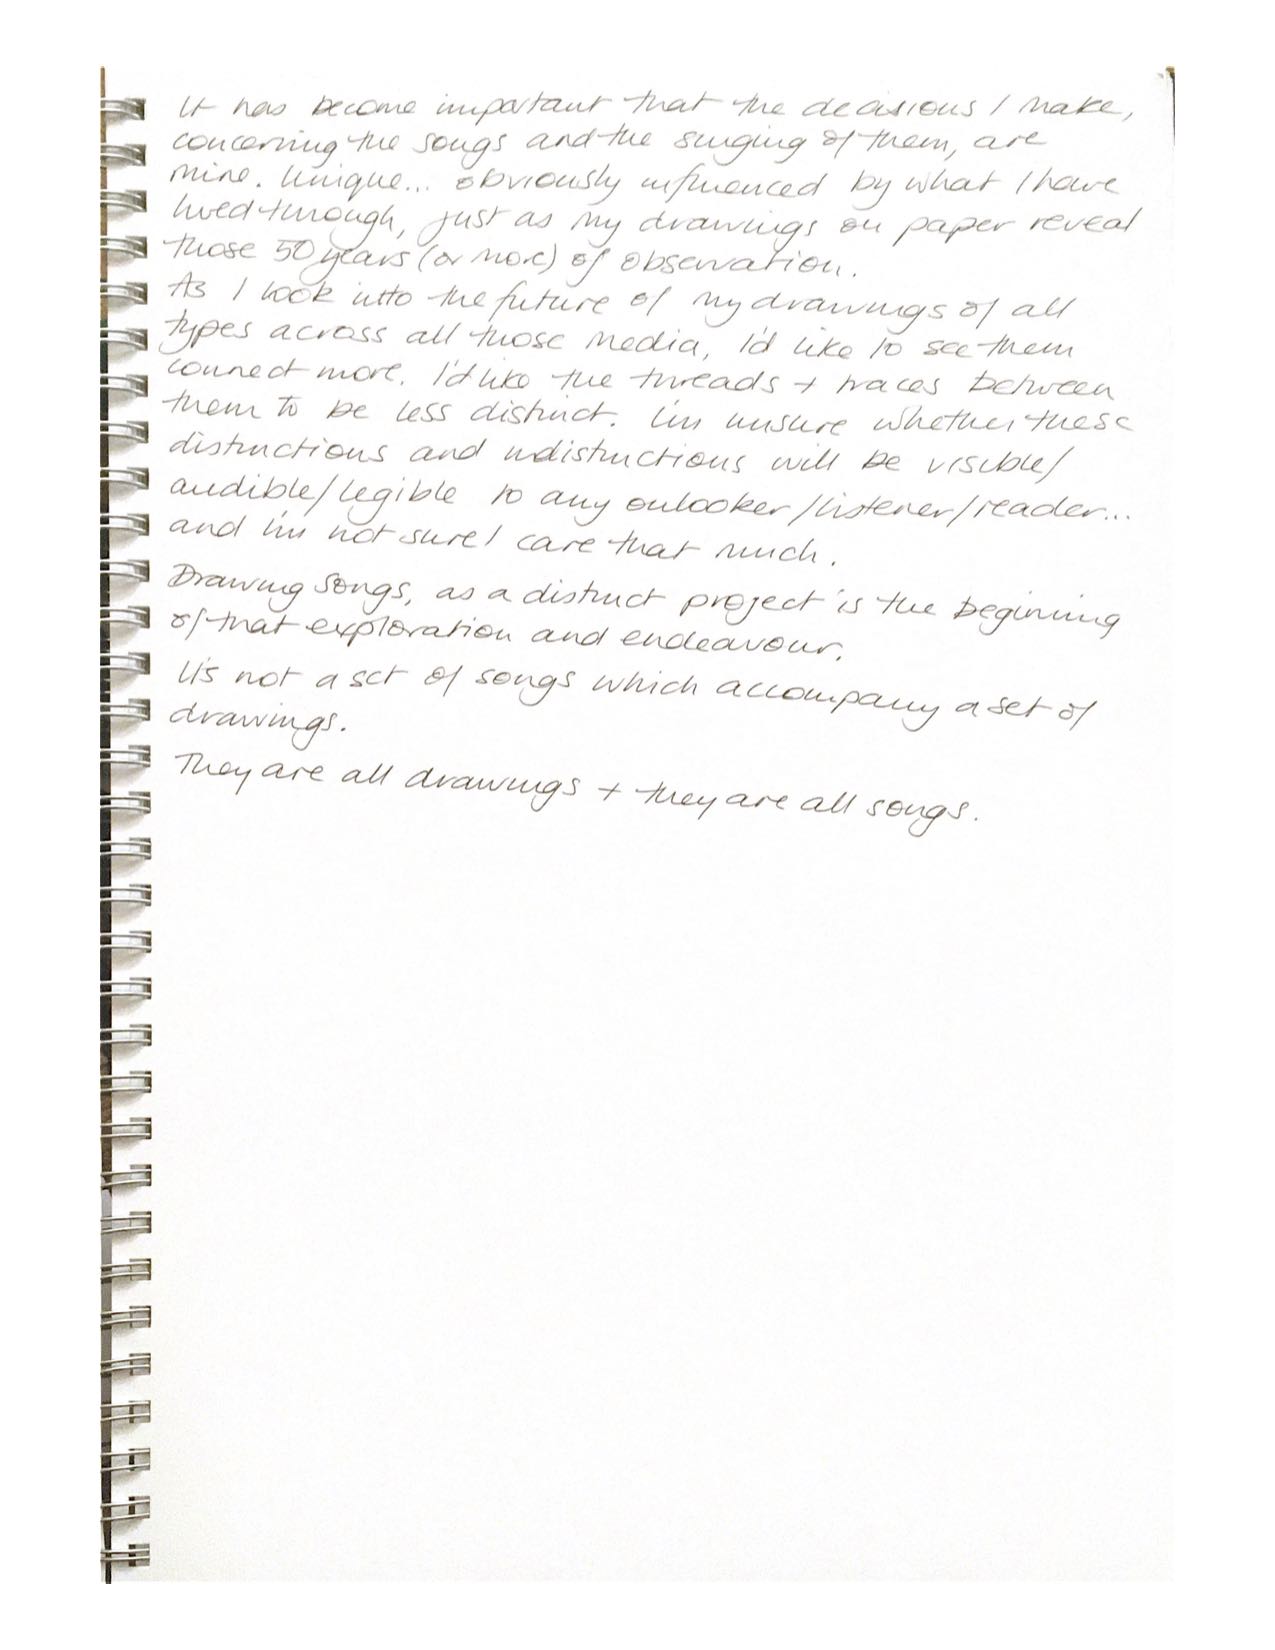 It has become important that the decisions I make,
concerning the songs and the singing of them, are
mine. Unique... obviously influenced by what I have
lived through, just as my drawings on paper reveal
those 50 years (or more) of observation.
As I look into the future of my drawings of all
types across all those media, I'd like to see them
connect more. I'd like the threads + traces between
them to be less distinct. I'm unsure whether these
distinctions and indistinctions will be visible/
audible/legible to any onlooker/listener/reader...
and I'm not sure I care that much.
Drawing Songs, as a distinct project is the beginning
of that exploration and endeavour.
It's not a set of songs which accompany a set of
drawings.
They are all drawings + they are all songs.